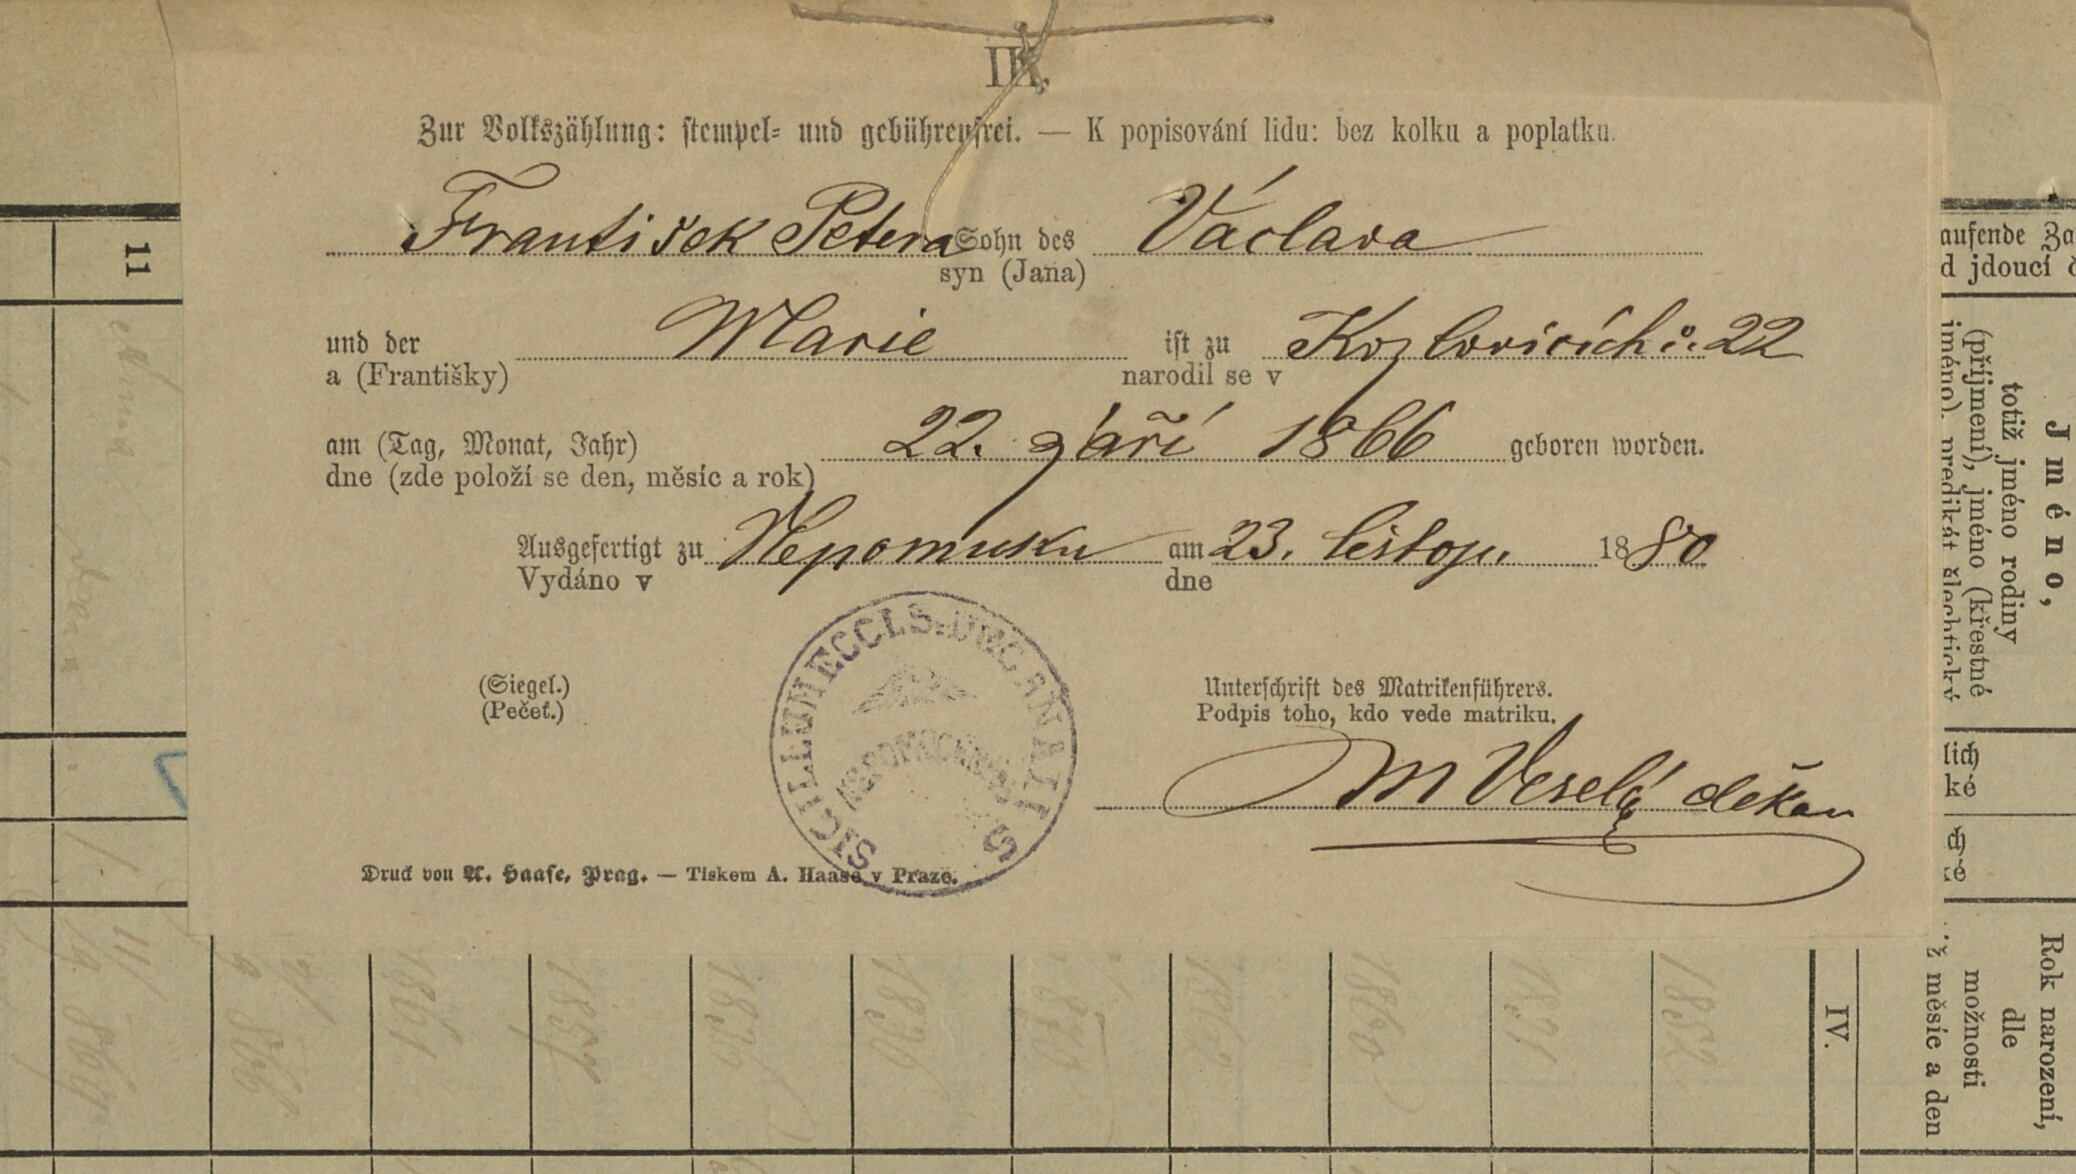 IX.
Zur Volkszählung: stempel= und gebührenfrei. — K popisování lidu: bez kolku a poplatku.
František Petera Sohn des Václava
syn (Jana)
und der Marie ist zu Kozlovicích č. 22
a (Františky) narodil se v
am (Tag, Monat, Jahr) 22. září 1866 geboren worden.
dne (zde položí se den, měsíc a rok)
Ausgefertigt zu Nepomuku am 23. listop. 1880
Vydáno v dne
(Siegel.) Unterschrift des Matrikenführers.
(Pečeť.) Podpis toho, kdo vede matriku.
M Veselý děkan
SIGILLUM ECCLS. DECANALIS
Druck von A. Haase, Prag. — Tiskem A. Haase v Praze.
11
aufende Za
d jdoucí č
Jméno,
totiž jméno rodiny
(příjmení), jméno (křestné
jméno), predikát šlechtický
lich
ké
ch
ké
Rok narození,
dle
možnosti
ž měsíc a den
IV.
1852
1860
1862
1836
1836
1857
1861